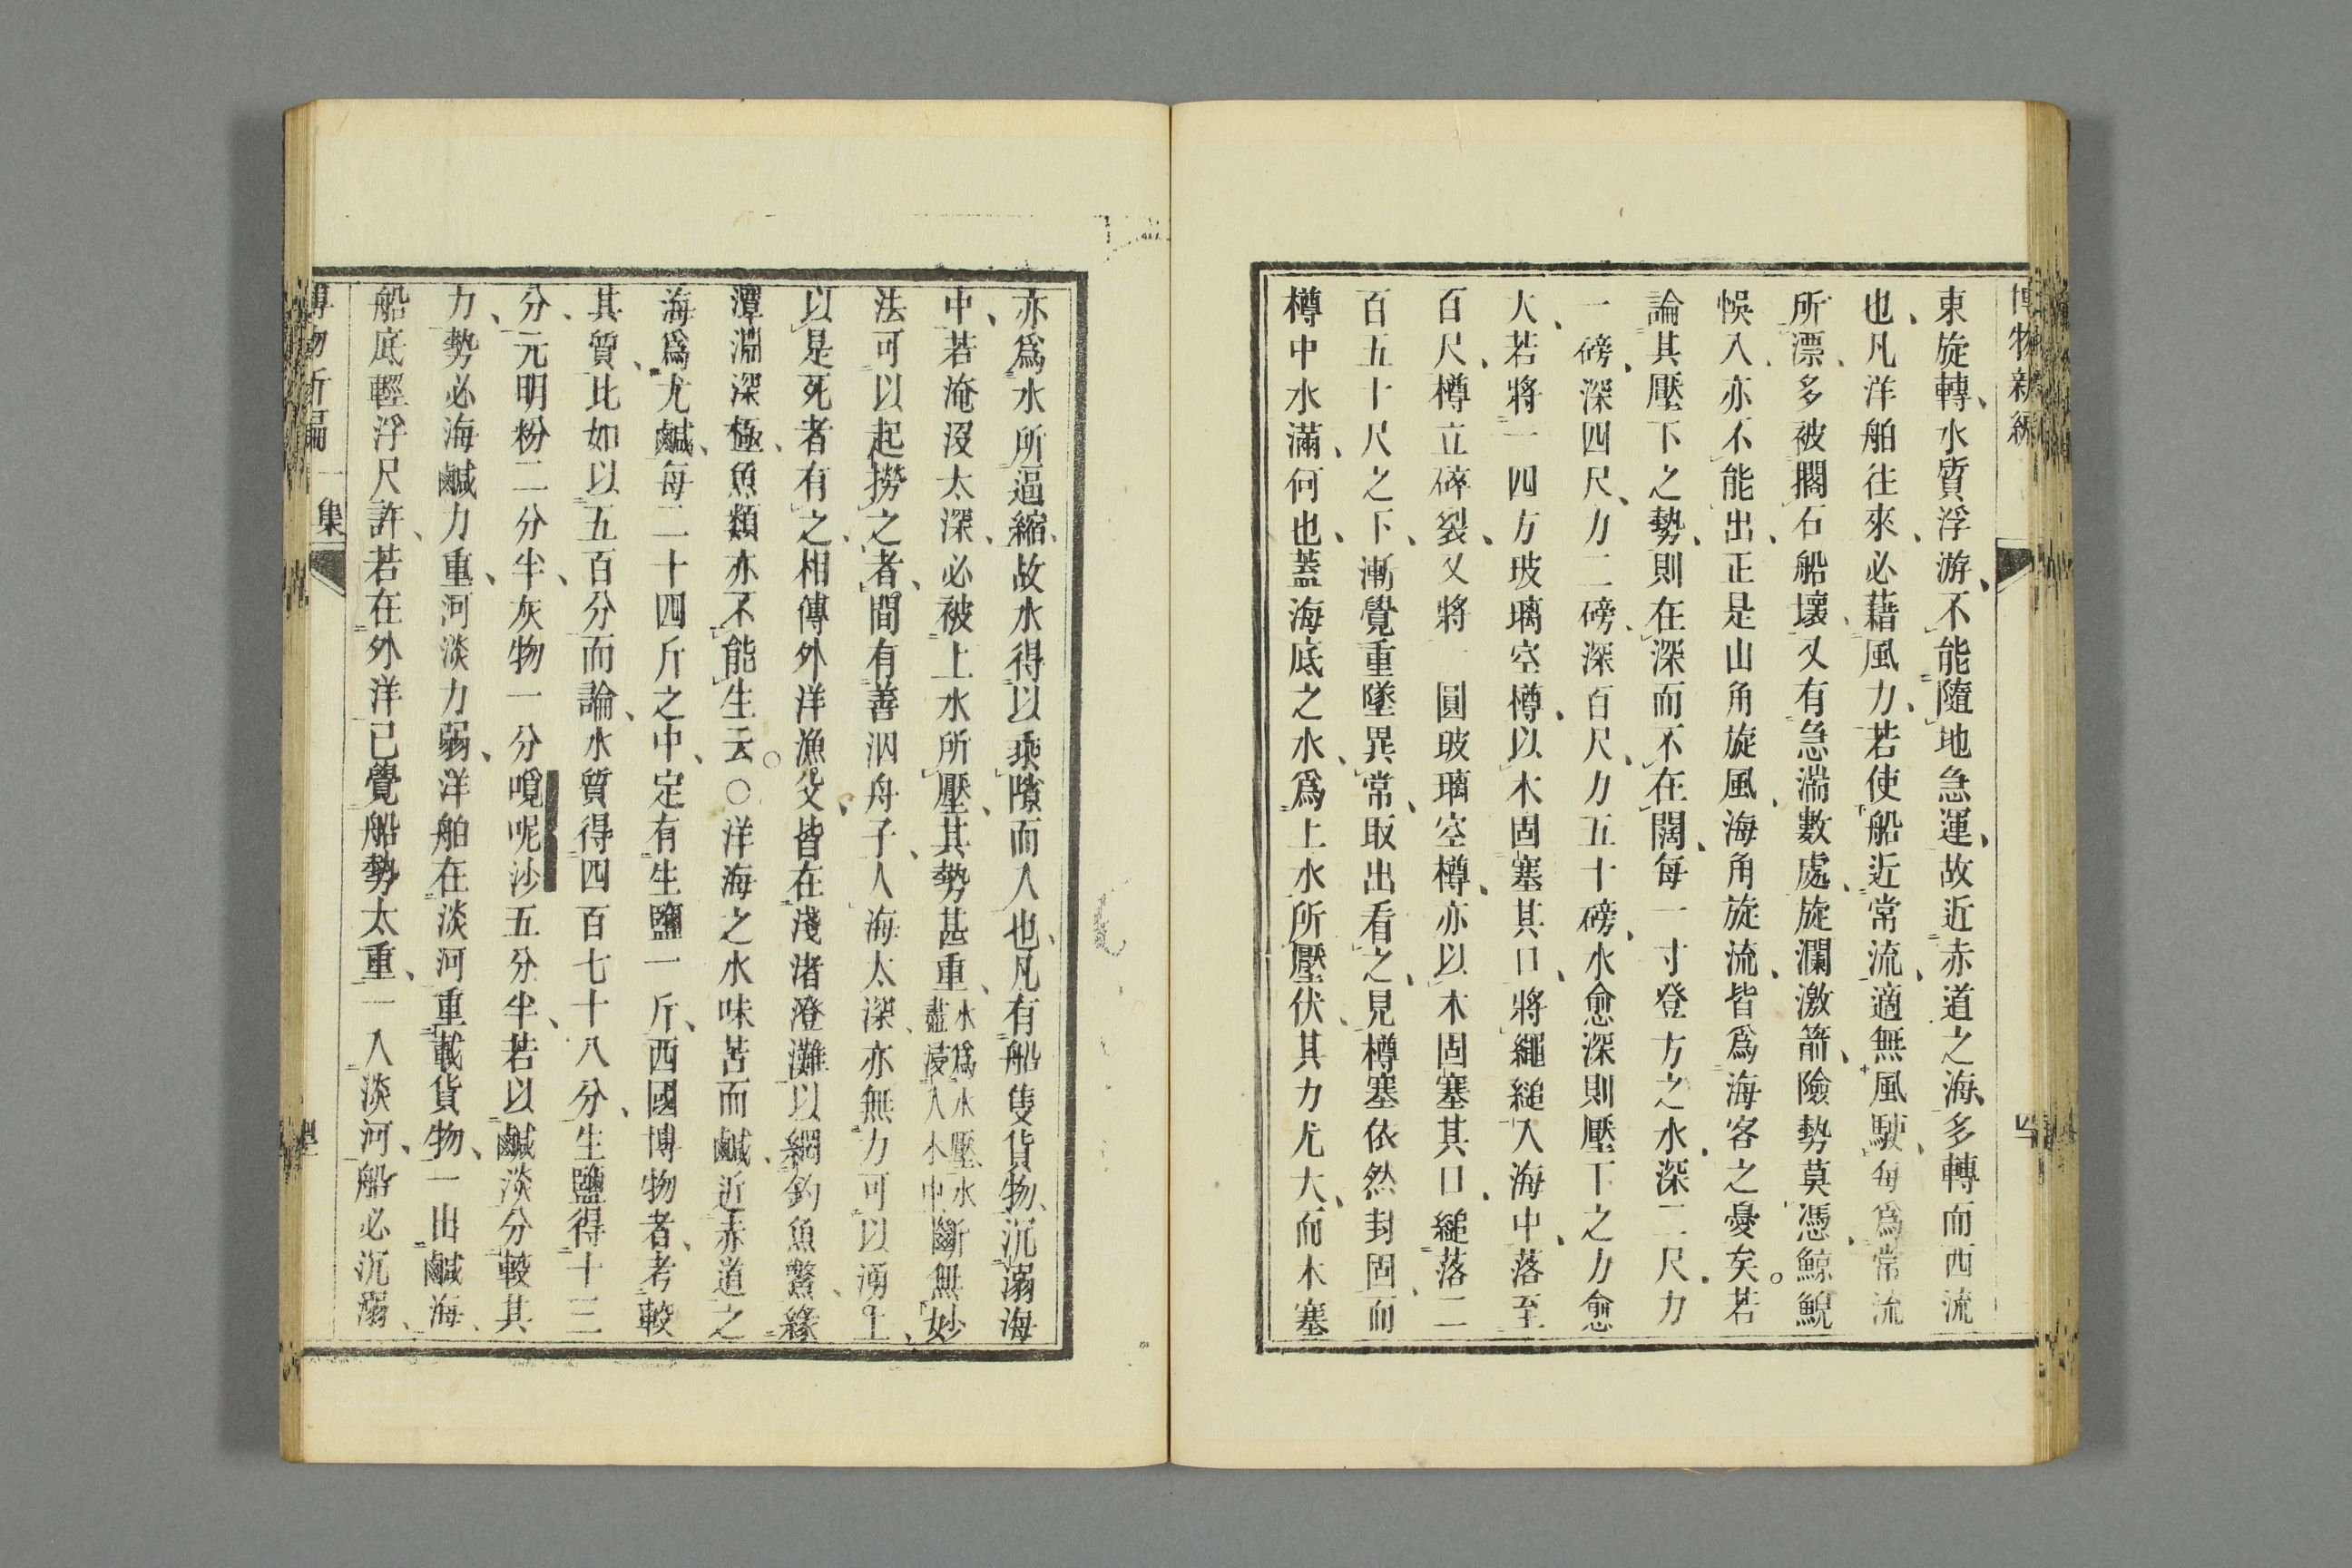 博物新編
四
東旋轉、水質浮游、不能隨地急運、故近赤道之海、多轉而西流
也、凡洋舶往來、必藉風力、若使船近常流、適無風駛、每爲常流
所漂、多被擱石船壞、又有急湍數處、旋瀾激箭、險勢莫憑、鯨鯢
悞入、亦不能出、正是山角旋風、海角旋流、皆爲海客之憂矣。若
論其壓下之勢、則在深而不在闊、每一寸登方之水、深二尺、力
一磅、深四尺、力二磅、深百尺、力五十磅、水愈深則壓下之力愈
大、若將一四方玻璃空樽、以木固塞其口、將繩縋入海中、落至
百尺、樽立碎裂、又將一圓玻璃空樽、亦以木固塞其口、縋落二
百五十尺之下、漸覺重墜異常、取出看之、見樽塞依然封固、而
樽中水滿、何也、蓋海底之水、爲上水所壓伏、其力尤大、而木塞
亦爲水所逼縮、故水得以乘隙而入也、凡有船隻貨物、沉溺海
中、若淹沒太深、必被上水所壓、其勢甚重、水爲水壓水盡浸入木中斷無妙
法可以起撈之者、間有善泅舟子、入海太深、亦無力可以湧上、
以是死者有之、相傳外洋漁父、皆在淺渚澄灘以網釣魚鱉、緣
潭淵深極、魚類亦不能生云。○洋海之水味苦而鹹、近赤道之
海爲尤鹹、每二十四斤之中、定有生鹽一斤、西國博物者、考較
其質、比如以五百分而論、水質得四百七十八分、生鹽得十三
分、元明粉二分半、灰物一分嘪呢沙五分半、若以鹹淡分較其
力勢、必海鹹力重、河淡力弱、洋舶在淡河重載貨物、一出鹹海、
船底輕浮尺許、若在外洋已覺船勢太重、一入淡河、船必沉溺、
博物新編 一集